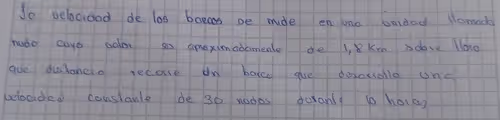 La velocidad de los barcos se mide en una unidad llamada
nudo cuyo valor es aproximadamente de 1,8 Km sobre hora
que distancia recorre un barco que desarrolla una
velocidad constante de 30 nudos durante 10 horas